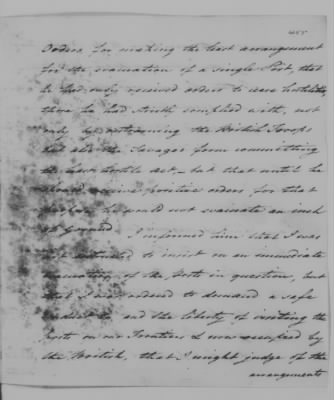 Orders for making the least arrangement
for the evacuation of a single Post, that
he had only received orders to cease hostilities
these he had strictly complied with, not
only by restraining the British Troops
but also the Savages from committing
the least hostile act,— but that until he
should receive positive orders for that
purpose he would not evacuate an inch
of Ground. I informed him that I was
not instructed to insist on an immediate
evacuation of the Posts in question, but
that I was ordered to demand a safe
conduct to and the liberty of visiting the
posts on our Frontiers & now occupied by
the British, that I might judge of the
arrangements